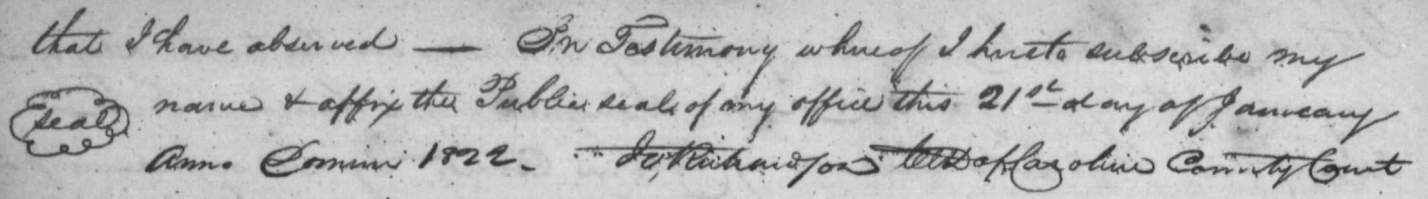 that I have observed — In Testimony whereof I hereto subscribe my
seal name & affix the Public seal of my office this 21st day of January
Anno Domini 1822. Jo. Richardson Clk of Caroline County Court